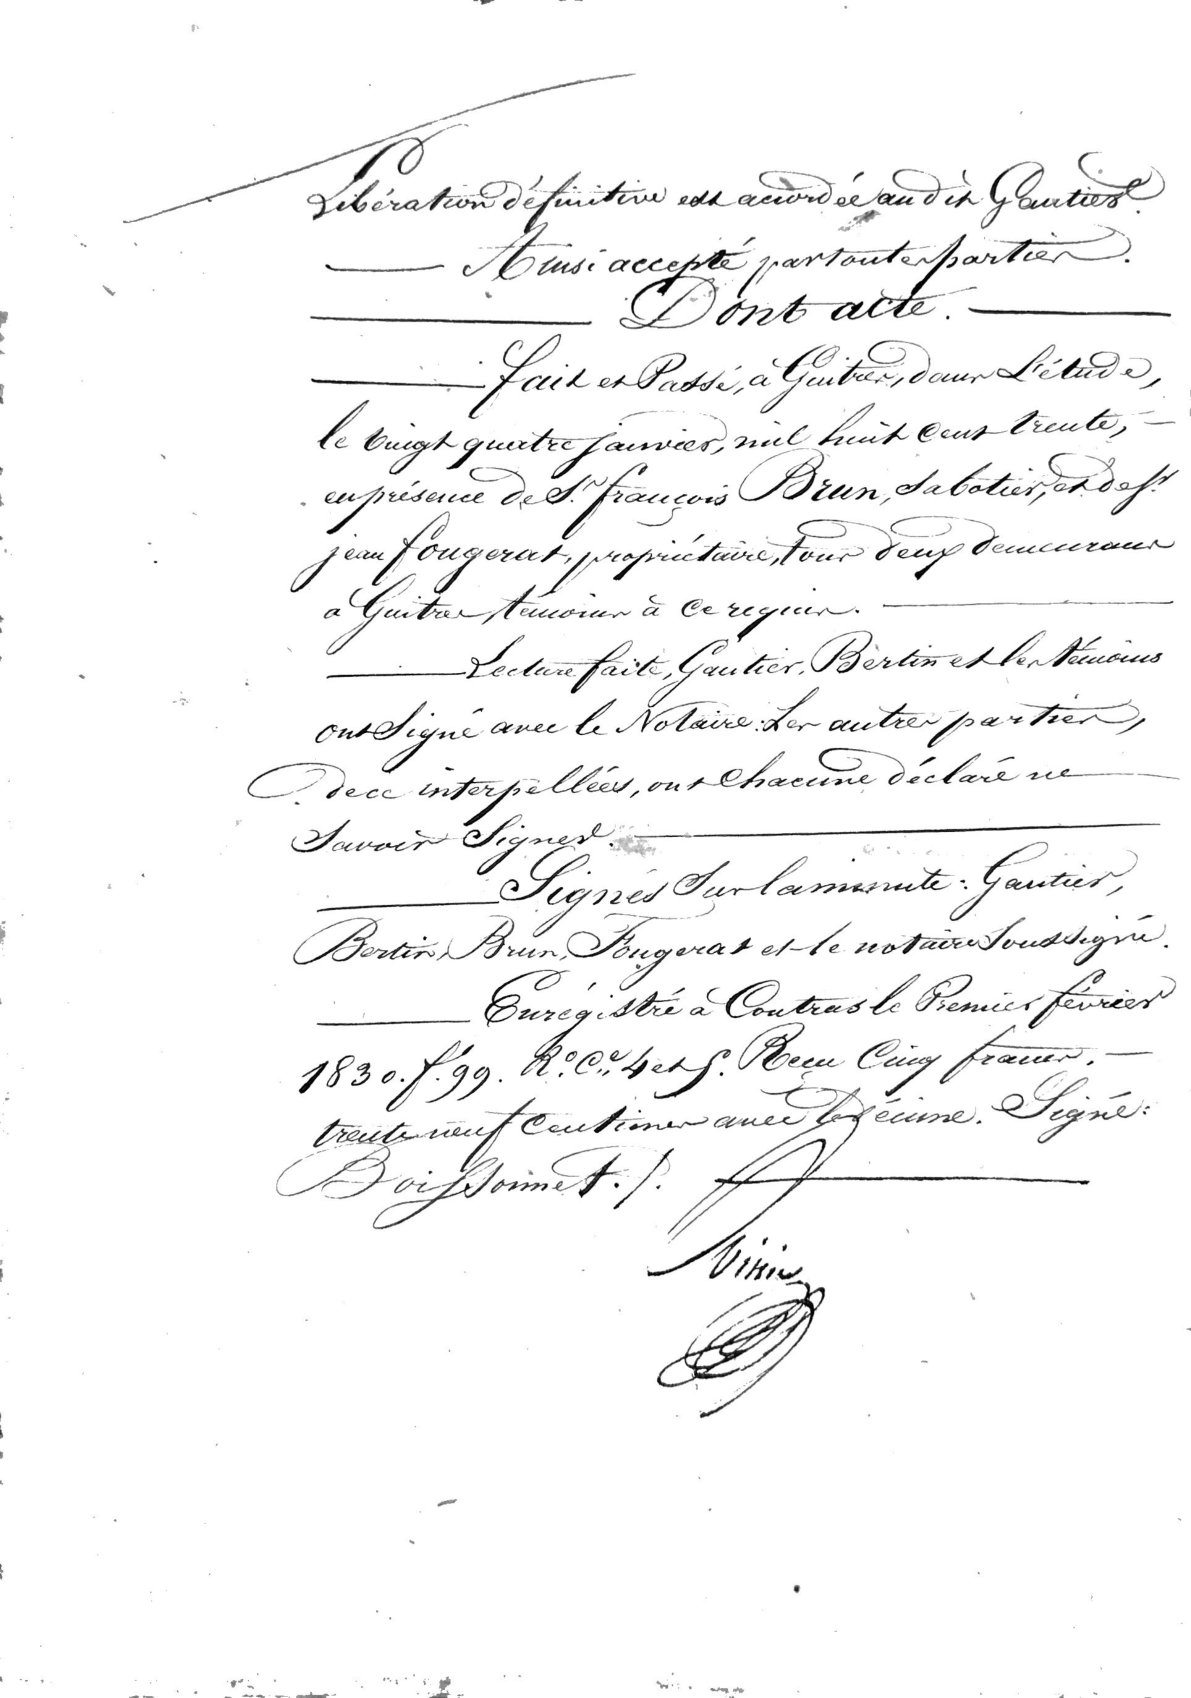 Libération définitive est accordée audit Gautier.
Ainsi accepté par toutes parties.
Dont acte.
fait et Passé, à Guitres, dans L'étude,
le vingt quatre janvier, mil huit cent trente,
en présence de Sr. françois Brun, Sabotier, et de Sr.
jean fougerat, propriétaire, tous deux demeurans
à Guitres, témoins à ce requis.
Lecture faite, Gautier, Bertin et les témoins
ont Signé avec le Notaire: Les autres parties,
de ce interpellées, ont chacune déclaré ne
Savoir Signer.
Signés Sur la minute: Gautier,
Bertin, Brun, Fougerat et le notaire Soussigné.
Enrégistré à Coutras le Premier février
1830. f°. 99. R°. Ce. 4 et 5. Recu Cinq francs.
trente neuf Centimes avec le décime. Signé:
Boissonnet./.